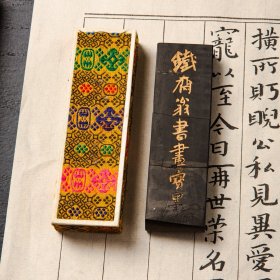 橫所眄睨公私見異愛
寵以至今日再世榮名
鐵齋翁書畫寶墨